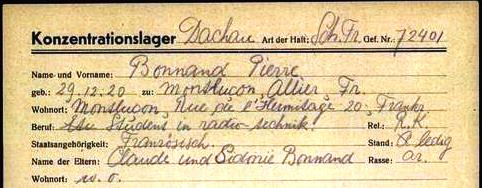 Konzentrationslager Dachau Art der Haft: Sch. Fr. Gef. Nr.: 72401
Name und Vorname: Bonnand Pierre
geb.: 29.12.20 zu: Montlucon, Allier Fr.
Wohnort: Montlucon, Rue de l'Hermitage 20, Frankr
Beruf: Student in radio-technik. Rel.: R.K
Staatsangehörigkeit: Französisch Stand: ledig
Name der Eltern: Claude und Sidonie Bonnand Rasse: ar.
Wohnort: w. o.